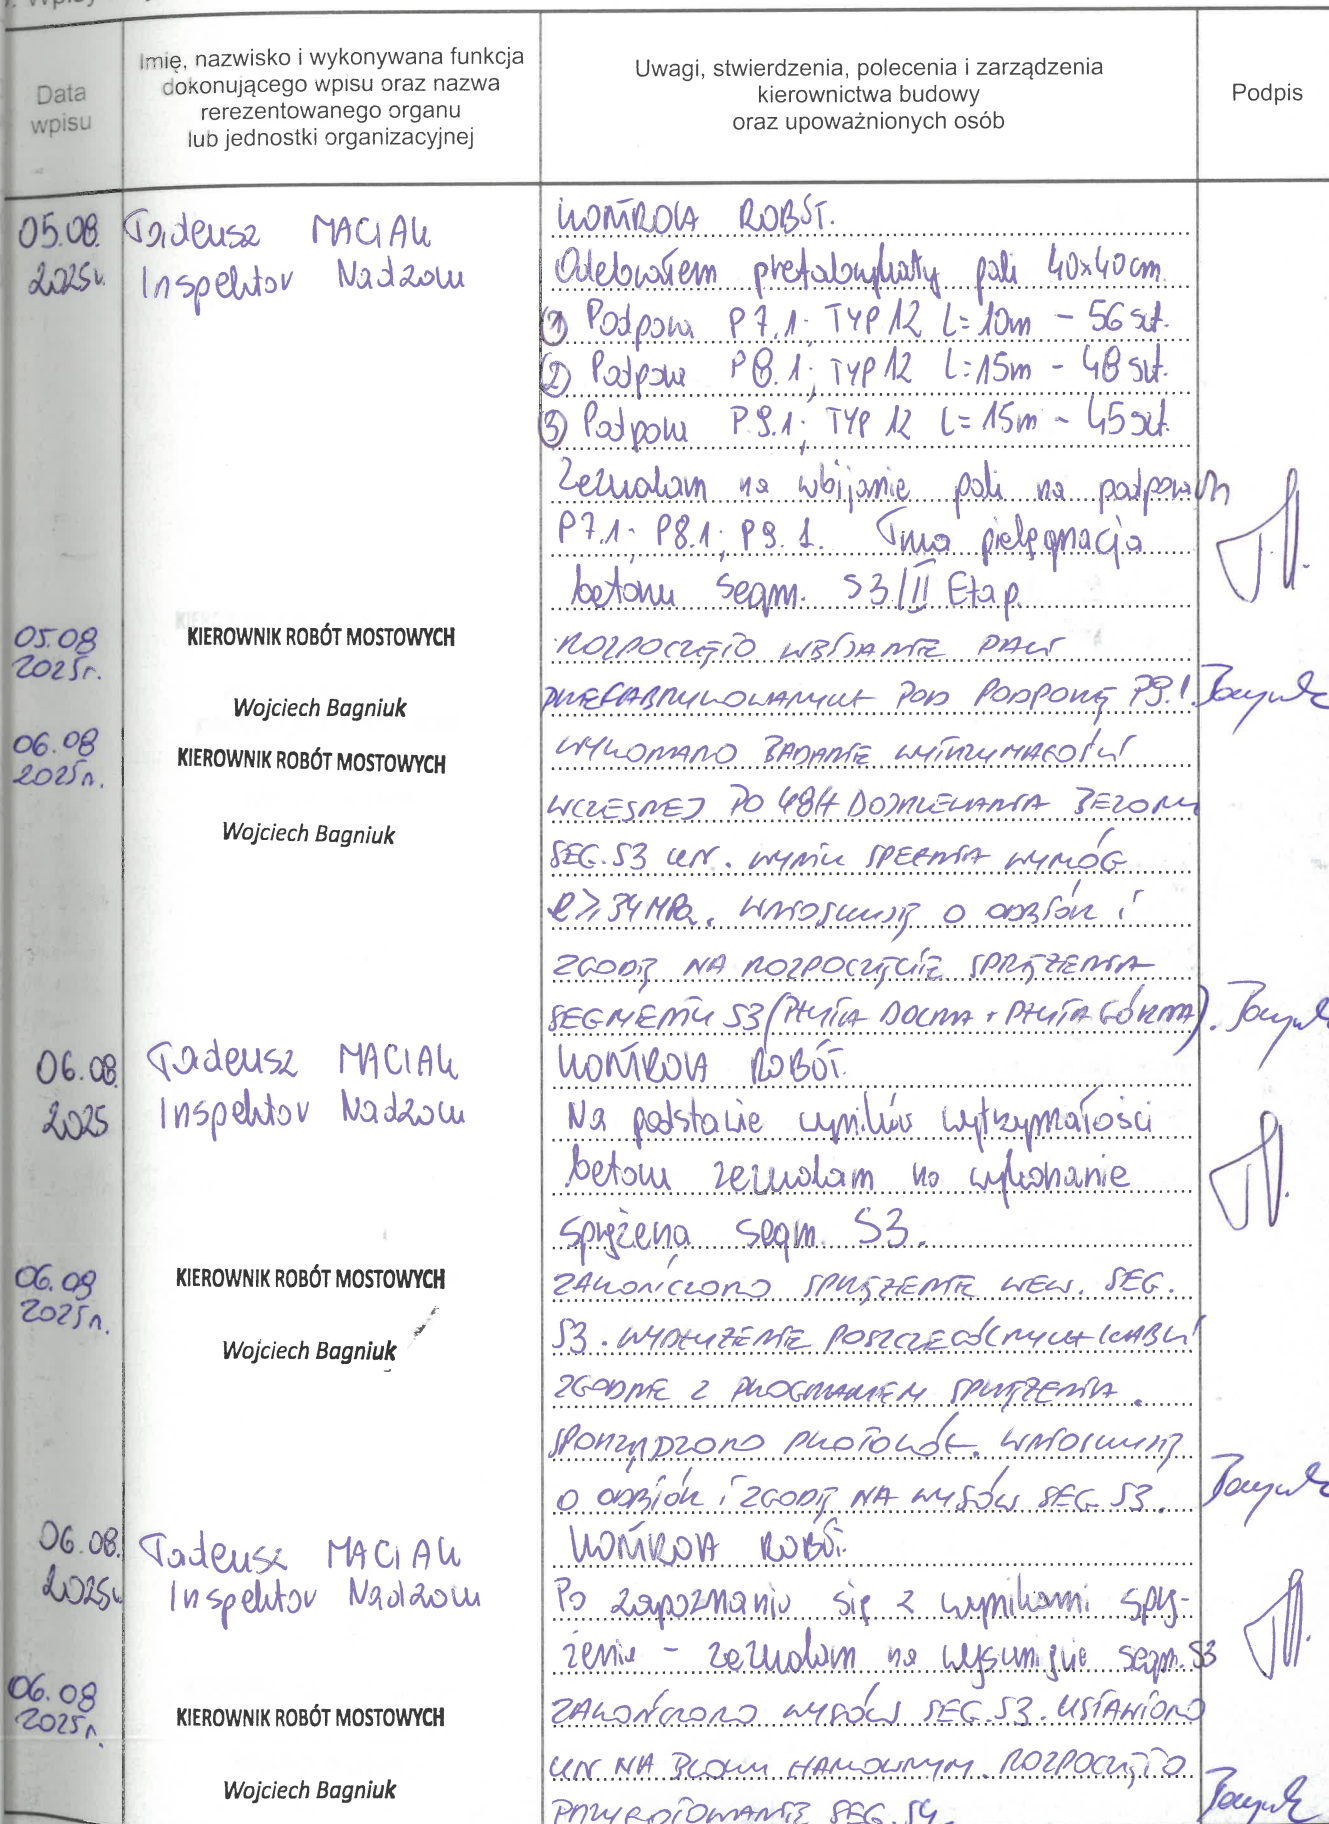 Wpisy
Data
wpisu
Imię, nazwisko i wykonywana funkcja
dokonującego wpisu oraz nazwa
rerezentowanego organu
lub jednostki organizacyjnej
Uwagi, stwierdzenia, polecenia i zarządzenia
kierownictwa budowy
oraz upoważnionych osób
Podpis
05.08.
2025r.
Tadeusz MACIAK
Inspektor Nadzoru
KONTROLA ROBÓT.
Odebrałem prefabrykaty pali 40x40cm.
① Podpora P7.1; TYP 12 L=10m - 56 szt.
② Podpora P8.1; TYP 12 L=15m - 48 szt.
③ Podpora P9.1; TYP 12 L=15m - 45 szt.
Zezwalam na wbijanie pali na podporach
P7.1; P8.1; P9.1. Trwa pielęgnacja
betonu segm. S3/II Etap.
05.08
2025r.
KIEROWNIK ROBÓT MOSTOWYCH
Wojciech Bagniuk
ROZPOCZĘTO WBIJANIE PALI
PREFABRYKOWANYCH POD PODPORĘ P9.1.
06.08
2025r.
KIEROWNIK ROBÓT MOSTOWYCH
Wojciech Bagniuk
WYKONANO BADANIE WYTRZYMAŁOŚCI
WCZESNEJ PO 48H DOJRZEWANIA BETONU
SEG. S3 UN. WYNIK SPEŁNIA WYMÓG
R≥34MPa. WNIOSKUJĘ O ODBIÓR I
ZGODĘ NA ROZPOCZĘCIE SPRĘŻENIA
SEGMENTU S3 (PŁYTA DOLNA + PŁYTA GÓRNA).
06.08.
2025
Tadeusz MACIAK
Inspektor Nadzoru
KONTROLA ROBÓT.
Na podstawie wyników wytrzymałości
betonu zezwalam na wykonanie
sprężenia segm. S3.
06.08
2025r.
KIEROWNIK ROBÓT MOSTOWYCH
Wojciech Bagniuk
ZAKOŃCZONO SPRĘŻENIE WEW. SEG.
S3. WYDŁUŻENIE POSZCZEGÓLNYCH KABLI
ZGODNE Z PROGRAMEM SPRĘŻENIA.
SPORZĄDZONO PROTOKÓŁ. WNIOSKUJĘ
O ODBIÓR I ZGODĘ NA WYSÓW SEG. S3.
06.08.
2025r
Tadeusz MACIAK
Inspektor Nadzoru
KONTROLA ROBÓT.
Po zapoznaniu się z wynikami sprę-
żenia - zezwalam na wysunięcie segm. S3
06.08
2025r.
KIEROWNIK ROBÓT MOSTOWYCH
Wojciech Bagniuk
ZAKOŃCZONO WYSÓW SEG. S3. USTAWIONO
UN NA BLOKU HAMOWNYM. ROZPOCZĘTO
PRZYGOTOWANIE SEG. S4.